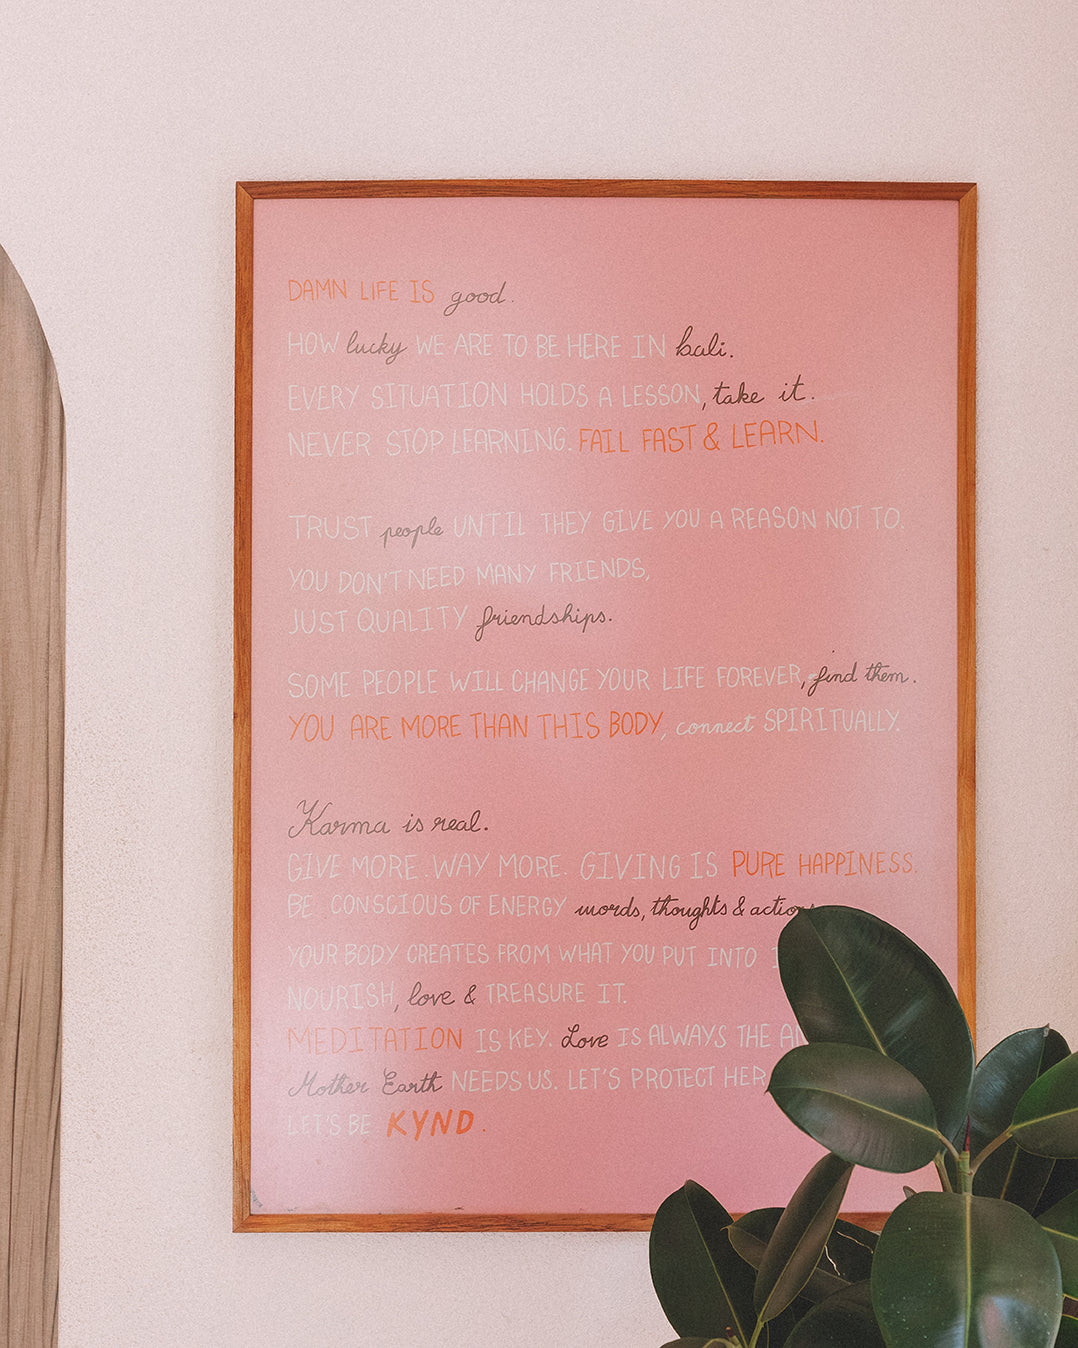 DAMN LIFE IS good.
HOW lucky WE ARE TO BE HERE IN bali.
EVERY SITUATION HOLDS A LESSON, take it.
NEVER STOP LEARNING. FAIL FAST & LEARN.
TRUST people UNTIL THEY GIVE YOU A REASON NOT TO.
YOU DON'T NEED MANY FRIENDS,
JUST QUALITY friendships.
SOME PEOPLE WILL CHANGE YOUR LIFE FOREVER, find them.
YOU ARE MORE THAN THIS BODY, connect SPIRITUALLY.
Karma is real.
GIVE MORE. WAY MORE. GIVING IS PURE HAPPINESS.
BE CONSCIOUS OF ENERGY words, thoughts & actions
YOUR BODY CREATES FROM WHAT YOU PUT INTO
NOURISH, love & TREASURE IT.
MEDITATION IS KEY. Love IS ALWAYS THE
Mother Earth NEEDS US. LET'S PROTECT HER
LET'S BE KYND.